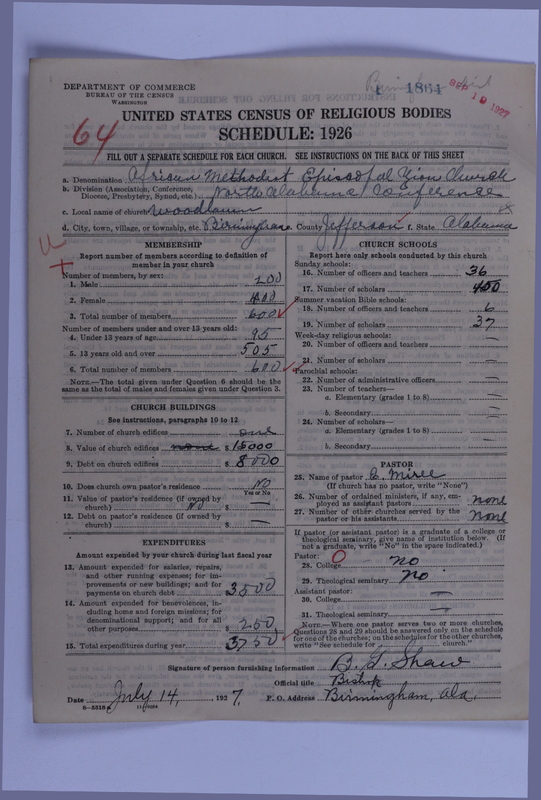 DEPARTMENT OF COMMERCE
BUREAU OF THE CENSUS
WASHINGTON
1864
SEP 19 1927
64
UNITED STATES CENSUS OF RELIGIOUS BODIES
SCHEDULE: 1926
FILL OUT A SEPARATE SCHEDULE FOR EACH CHURCH. SEE INSTRUCTIONS ON THE BACK OF THIS SHEET
a. Denomination African Methodist Episcopal Zion Church
b. Division (Association, Conference, Diocese, Presbytery, Synod, etc.) North Alabama Conference
c. Local name of church Woodlawn
d. City, town, village, or township, etc. Birmingham e. County Jefferson f. State Alabama
MEMBERSHIP
Report number of members according to definition of member in your church
Number of members, by sex:
1. Male 200
2. Female 400
3. Total number of members 600
Number of members under and over 13 years old:
4. Under 13 years of age 95
5. 13 years old and over 505
6. Total number of members 600
NOTE.—The total given under Question 6 should be the same as the total of males and females given under Question 3.
CHURCH BUILDINGS
See instructions, paragraphs 10 to 12
7. Number of church edifices one
8. Value of church edifices none $15000
9. Debt on church edifices $8000
10. Does church own pastor's residence? No
Yes or No
11. Value of pastor's residence (if owned by church) No $ —
12. Debt on pastor's residence (if owned by church) $ —
EXPENDITURES
Amount expended by your church during last fiscal year
13. Amount expended for salaries, repairs, and other running expenses; for improvements or new buildings; and for payments on church debt $3500
14. Amount expended for benevolences, including home and foreign missions; for denominational support; and for all other purposes 250
15. Total expenditures during year $3750
CHURCH SCHOOLS
Report here only schools conducted by this church
Sunday schools:
16. Number of officers and teachers 36
17. Number of scholars 400
Summer vacation Bible schools:
18. Number of officers and teachers 6
19. Number of scholars 37
Week-day religious schools:
20. Number of officers and teachers —
21. Number of scholars —
Parochial schools:
22. Number of administrative officers —
23. Number of teachers—
a. Elementary (grades 1 to 8) —
b. Secondary —
24. Number of scholars—
a. Elementary (grades 1 to 8) —
b. Secondary —
PASTOR
25. Name of pastor E. Miree
(If church has no pastor, write "None")
26. Number of ordained ministers, if any, employed as assistant pastors none
27. Number of other churches served by the pastor or his assistants none
If pastor (or assistant pastor) is a graduate of a college or theological seminary, give name of institution below. (If not a graduate, write "No" in the space indicated.)
Pastor:
28. College no
29. Theological seminary No
Assistant pastor:
30. College —
31. Theological seminary —
NOTE.—Where one pastor serves two or more churches, Questions 28 and 29 should be answered only on the schedule for one of the churches; on the schedules for the other churches, write "See schedule for church."
Signature of person furnishing information B. G. Shaw
Official title Bishop
Date July 14, 1927. P. O. Address Birmingham, Ala.